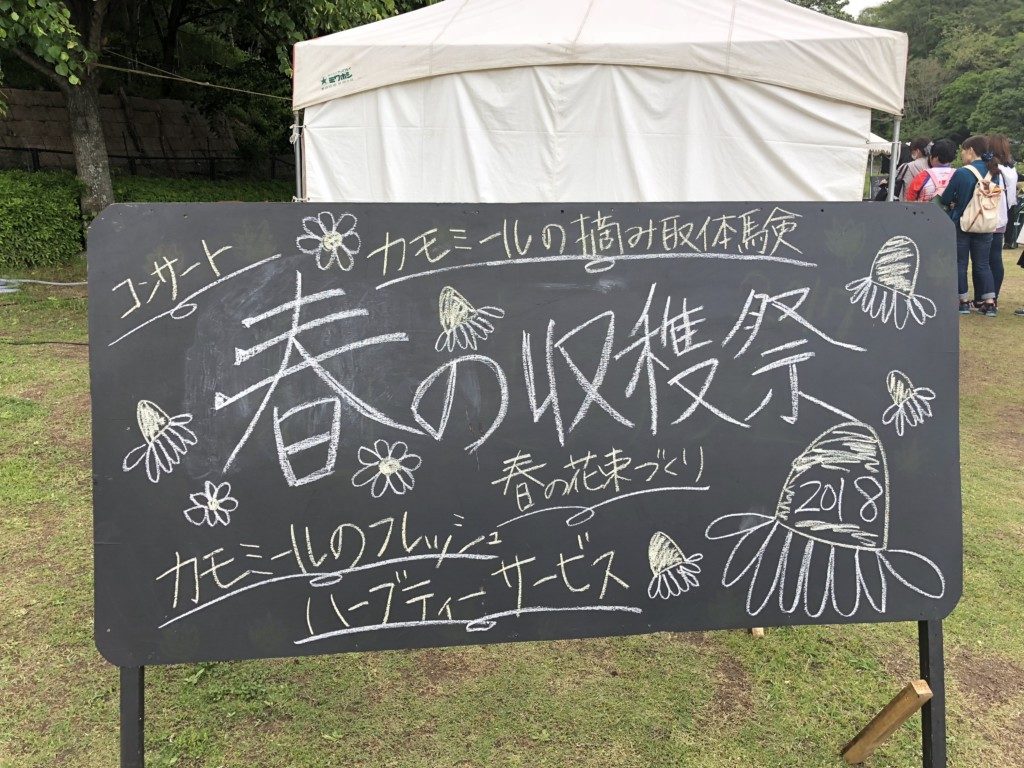 コンサート
カモミールの摘み取体験
春の収穫祭
春の花束づくり
2018
カモミールのフレッシュ
ハーブティーサービス